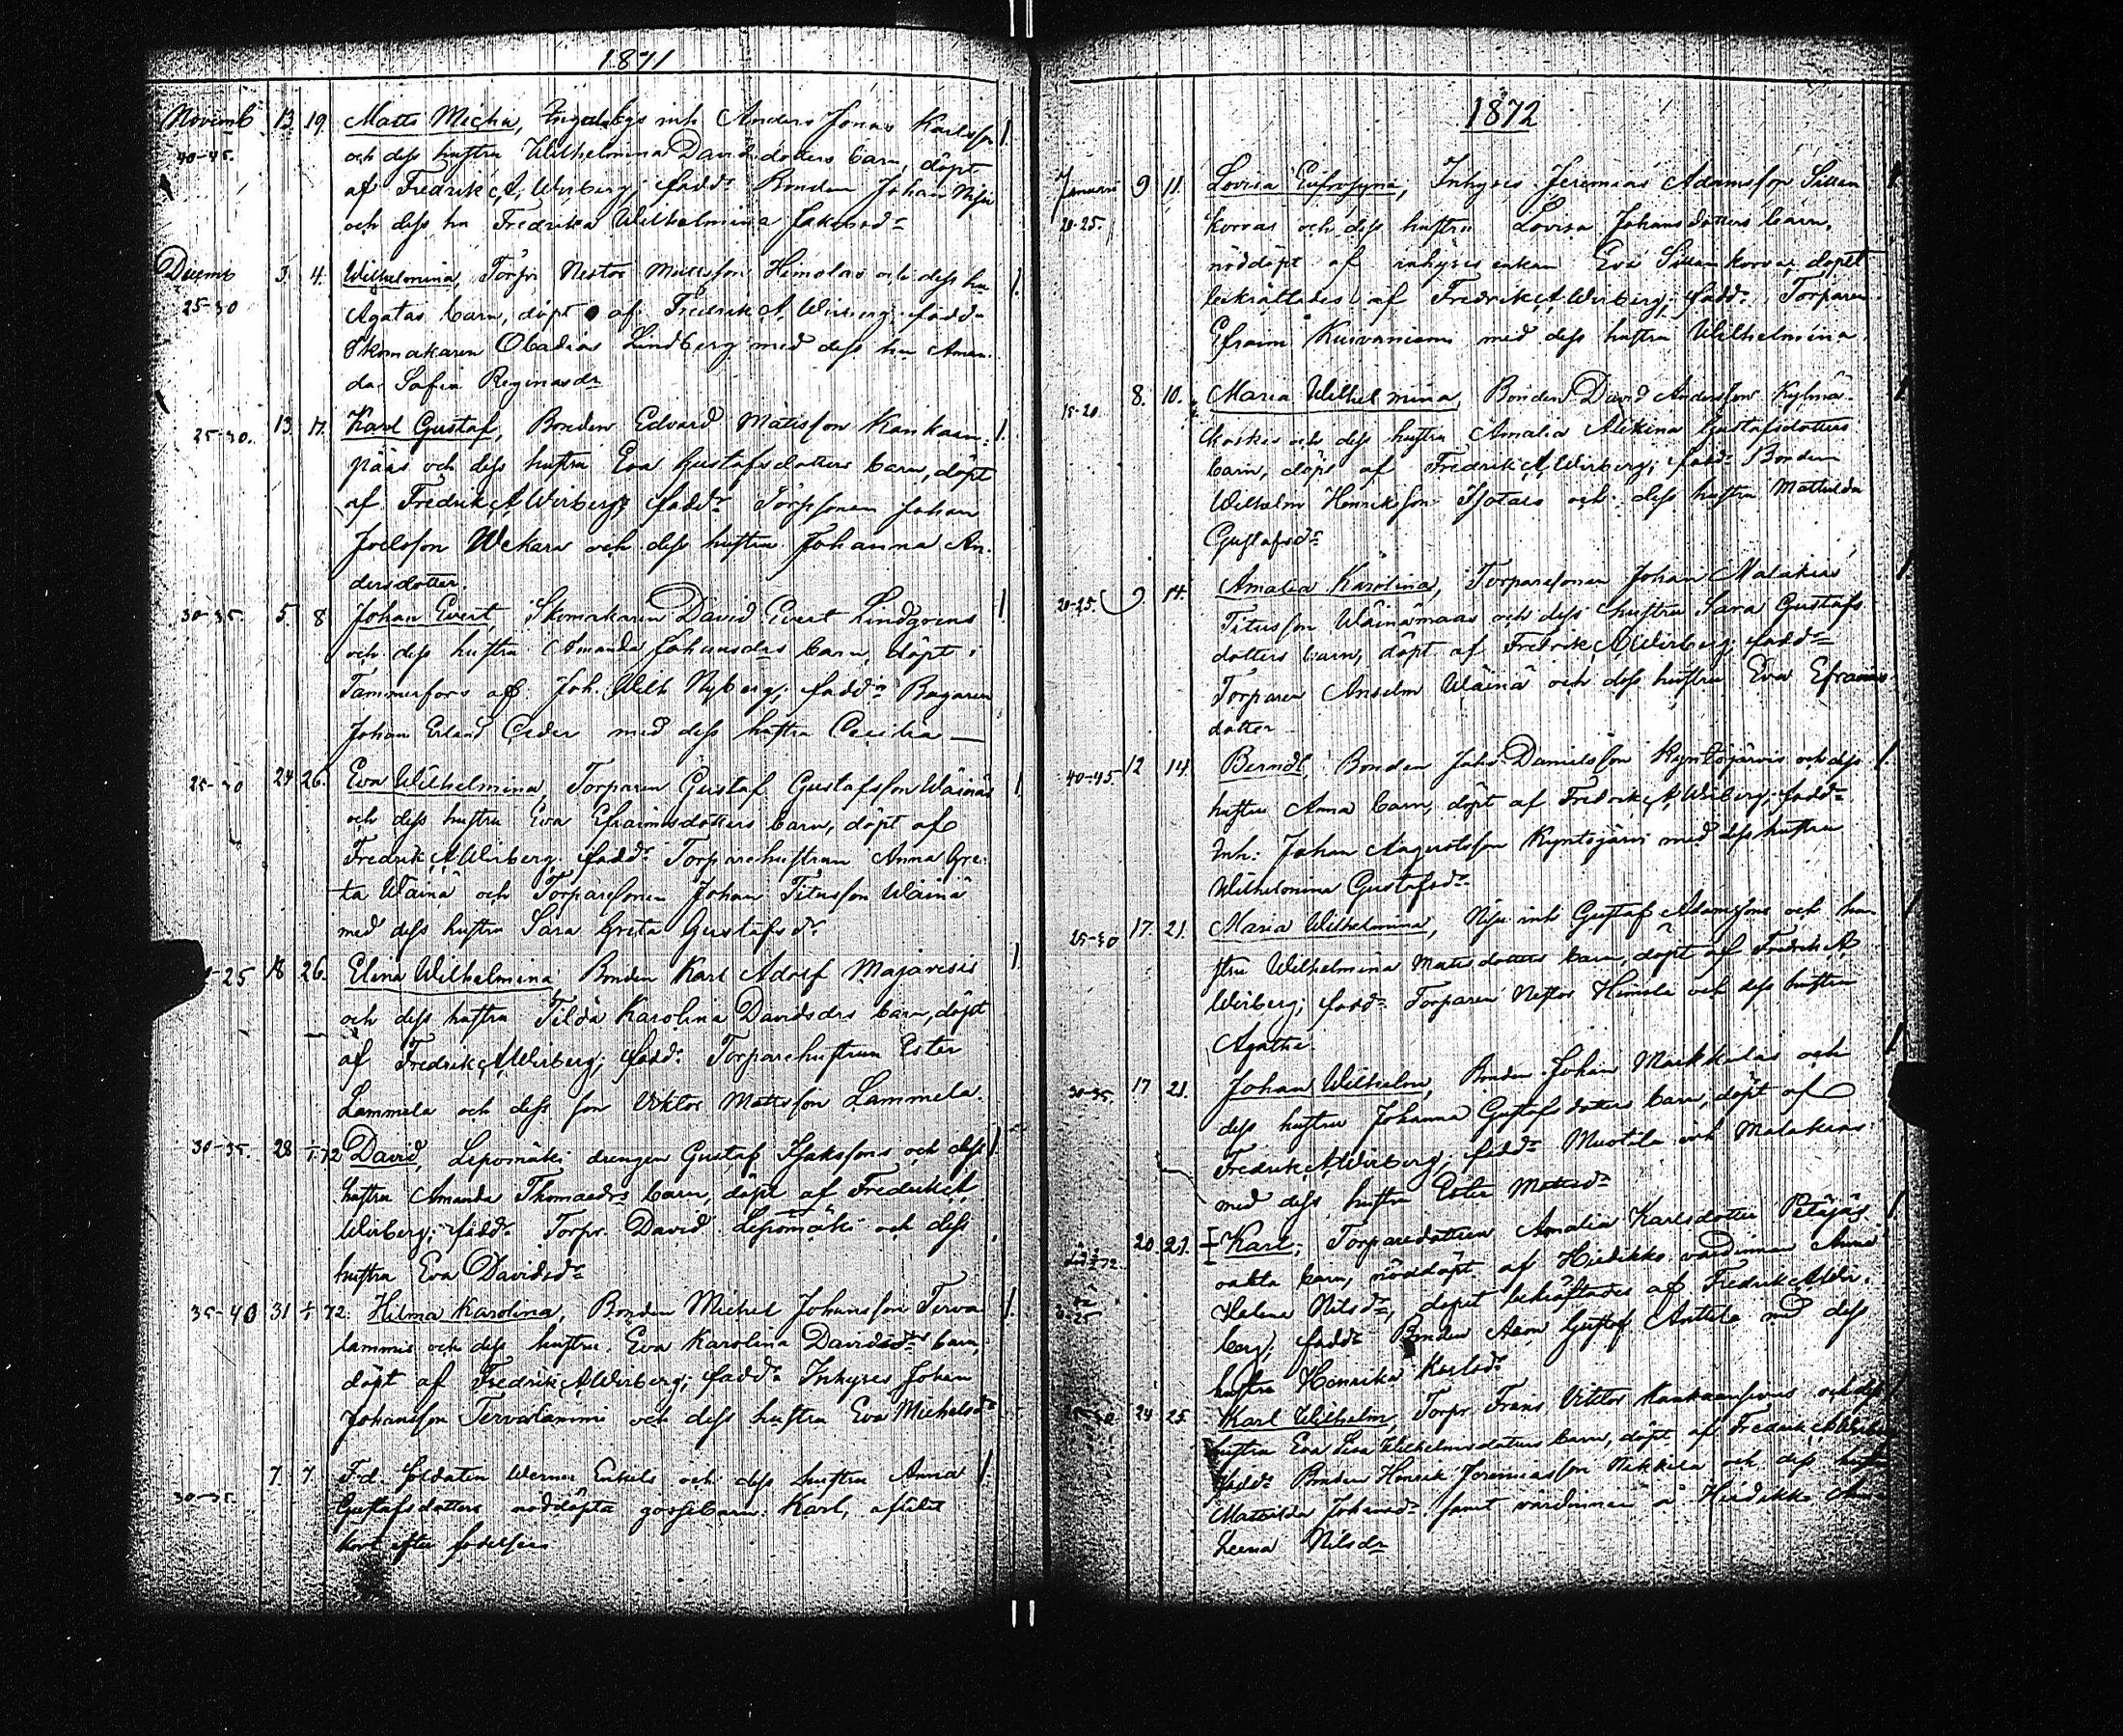 1871
Novemb 13 19. Matts Micha, inh Anders Jonas Karlsson
40-45. och dess hustru Wilhelmina Davidsdotters barn, döpt
af Fredrik A, Wirberg; fadd: Bonden Johan
och dess hu Fredrika Wilhelmina
Decemb 3. 4. Wilhelmina, Torpr Nestor Mattsson Himolas och dess hu
25-30 Agatas barn, döpt af Fredrik A, Wirberg; fadd:
Skomakaren Obadias Lindberg med dess hu Aman-
da Sofia Reginasdr
25-30. 13. 17. Karl Gustaf, Bonden Edvard Mattsson Kankaan-
pääs och dess hustru Eva Gustafsdotters barn, döpt
af Fredrik A Wirberg; fadd: Johan
Joelsson Wekara och dess hustru Johanna An-
dersdotter.
30-35 5 8 Johan Evert, Skomakaren David Evert Lindgrens
och dess hustru Amanda Johansdrs barn, döpt i
Tammerfors af Joh. Wilh Nyberg; fadd: Bagaren
Johan Erland Ceder med dess hustru Cecilia —
25-30 24 26. Eva Wilhelmina, Torparen Gustaf Gustafsson Wäinäs
och dess hustru Eva Efraimsdotters barn, döpt af
Fredrik A Wirberg; fadd: Torparehustrun Anna Gre-
ta Wäinä och Torparesonen Johan Titusson Wäinä
med dess hustru Sara Greta Gustafsdr
-25 18 26. Elina Wilhelmina Bonden Karl Adolf Majavesis
och dess hustru Tilda Karolina Davidsdrs barn, döpt
af Fredrik A Wirberg; fadd: Torparehustrun Ester
Lammela och dess son Viktor Mattsson Lammela.
30-35. 28 1/1.72 David, Lepomäki drengen Gustaf Isakssons och dess
hustru Amanda Thomaedrs barn, döpt af Fredrik A,
Wirberg; fadd: Torpr. David Lepomäki och dess
hustru Eva Davidsdr
35-40 31 1/1 72. Hilma Karolina, Bonden Michel Johansson Terva-
lammis och dess hustru Eva Karolina Davidsdrs barn,
döpt af Fredrik A Wirberg; fadd: Inhyses Johan
Johansson Tervalammi och dess hustru Eva Michelsdr
7. 7. F.d. Soldaten Werner Enkels och dess hustru Anna
30-35. Gustafsdotters nöddöpta gossebarn Karl, aflidit
kort efter födelsen
1872
Januari 9 11. Lovisa Eufrosyna, Inhyses Jeremias Adamsson Sillan-
20-25. korvas och dess hustru Lovisa Johansdotters barn,
nöddöpt af inhyses enkan Eva Sillankorva, dopet
bekräftades af Fredrik A Wirberg; fadd: Torparen
Efraim med dess hustru Wilhelmina.
15-20 8. 10. Maria Wilhelmina, Bonden David Andersson Kylmä-
koskis och dess hustru Amalia Gustafsdotters
barn, döpt af Fredrik A, Wirberg; fadd: Bonden
Wilhelm Henriksson och dess hustru Mathilda
Gustafsdr
20-25. 9. 14. Amalia Karolina, Torparesonen Johan Malakias
Titusson Wäinämaas och dess hustru Sara Gustafs-
dotters barn, döpt af Fredrik A, Wirberg; fadd:
Torparen Anselm Wäinä och dess hustru Eva Efraims-
dotter
40-45. 12 14. Berndt, Bonden Danielsson Kyntöjärvis och dess
hustru Anna barn, döpt af Fredrik A Wirberg; fadd:
Inh: Johan Augustsson Kyntöjärvi med dess hustru
Wilhelmina Gustafsdr
25-30 17. 21. Maria Wilhelmina, inh Gustaf Adamssons och hu-
stru Wilhelmina Matsdotters barn, döpt af Fredrik A,
Wirberg; fadd: Torparen Nestor Himola och dess hustru
Agatha.
30-35. 17 21. Johan Wilhelm, Bonden Johan Markkulas och
dess hustru Johanna Gustafsdotters barn, döpt af
Fredrik A, Wirberg; fadd: inh Malakias
med dess hustru Ester Mattsdr
20. 21. Karl; Torparedottren Amalia Karlsdotter Petäjäs
oäkta barn, nöddöpt af Hiedikko värdinnan Anna
Helena Nilsdr, dopet bekräftades af Fredrik A, Wir-
berg; fadd: Bonden Aron Gustaf Anttila med dess
hustru Henrika Karlsdr
24 25. Karl Wilhelm, Torpr Frans Viktor och dess
hustru Eva Lisa Wilhelmsdotters barn, döpt af Fredrik A Wirberg
fadd: Bonden Henrik Jeremiasson Nikkila och dess hustru
Mathilda Johansdr samt värdinnan å Hiedikko
Leena Nilsdr